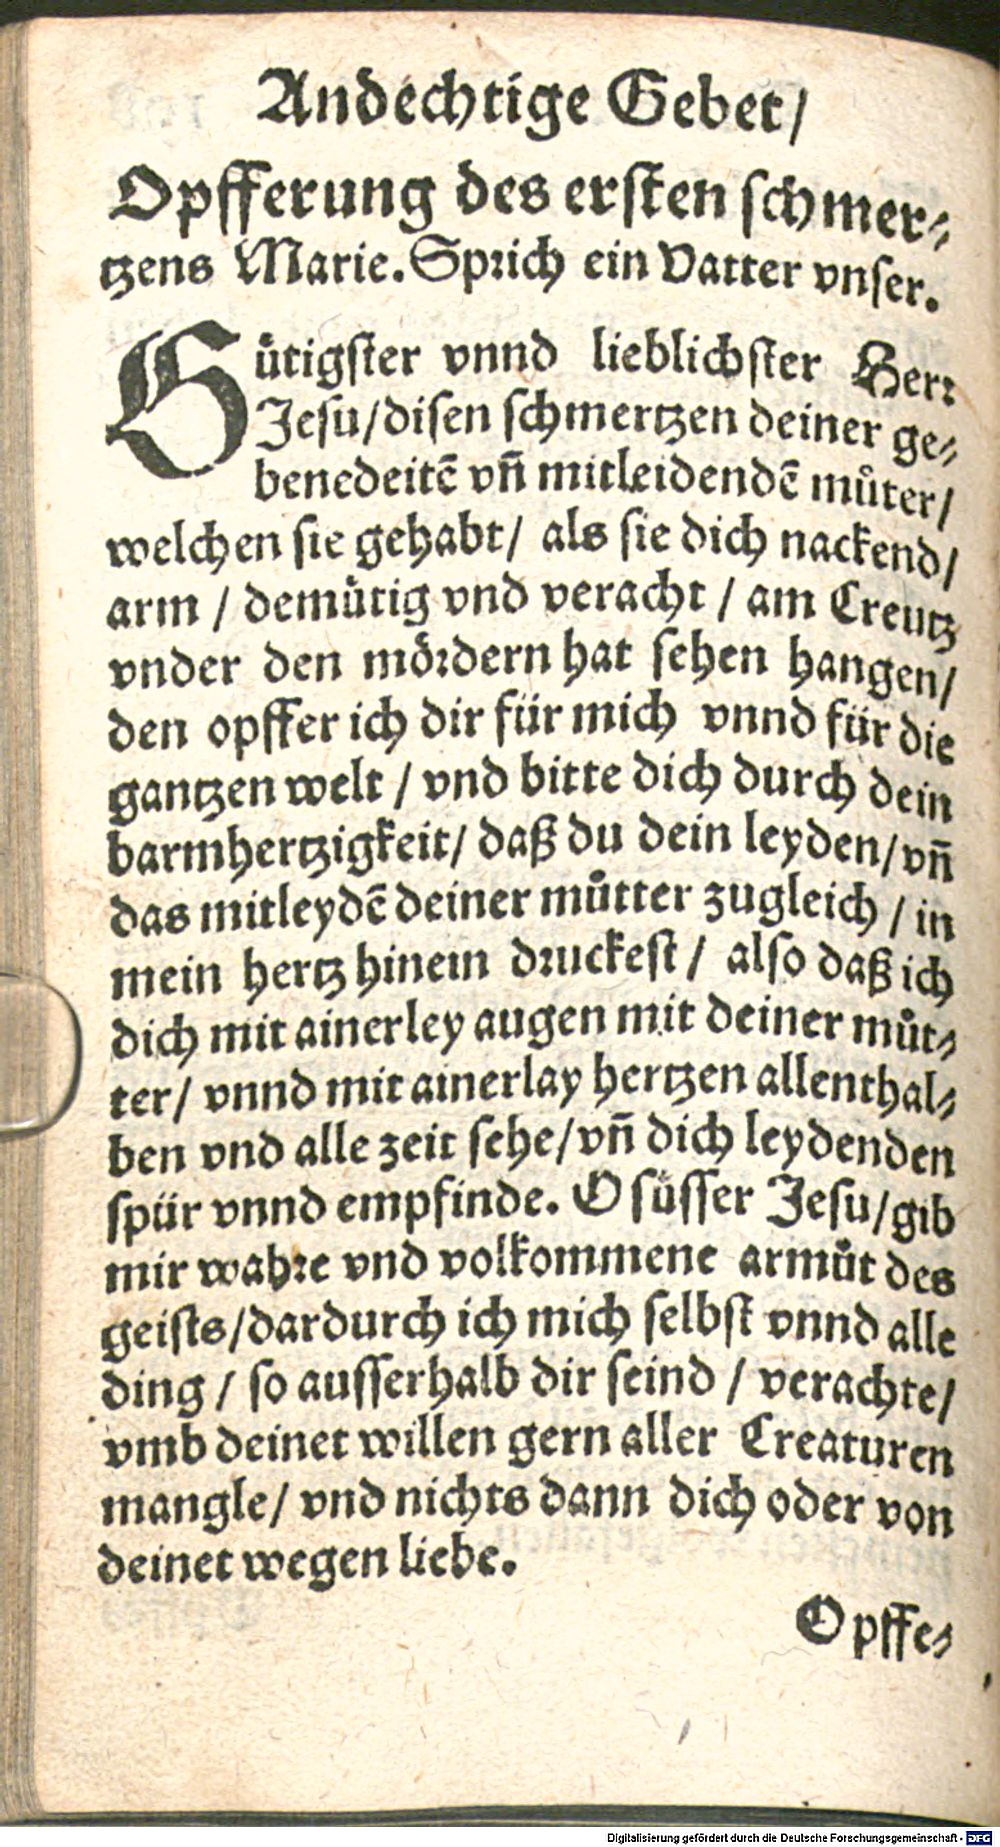 Andechtige Gebet/
Opfferung des ersten schmer⸗
tzens Marie. Sprich ein Vatter vnser.
Gütigster vnnd lieblichster Herr
Jesu/disen schmertzen deiner ge⸗
benedeitẽ vñ mitleidendẽ můter/
welchen sie gehabt/ als sie dich nackend/
arm / demütig vnd veracht / am Creutz
vnder den mördern hat sehen hangen/
den opffer ich dir für mich vnnd für die
gantzen welt / vnd bitte dich durch dein
barmhertzigkeit/ daß du dein leyden/vñ
das mitleydẽ deiner můtter zugleich / in
mein hertz hinein druckest / also daß ich
dich mit ainerley augen mit deiner můt⸗
ter/ vnnd mit ainerlay hertzen allenthal⸗
ben vnd alle zeit sehe/vñ dich leydenden
spür vnnd empfinde. O süsser Jesu/gib
mir wahre vnd volkommene armůt des
geists/dardurch ich mich selbst vnnd alle
ding / so ausserhalb dir seind / verachte/
vmb deinet willen gern aller Creaturen
mangle/ vnd nichts dann dich oder von
deinet wegen liebe.
Opffe⸗
Digitalisierung gefördert durch die Deutsche Forschungsgemeinschaft - DFG